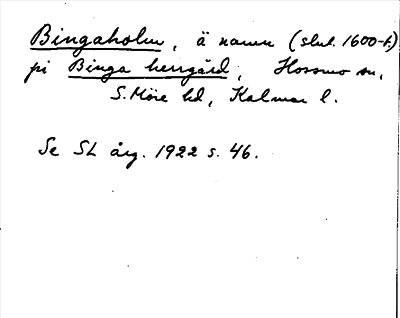 Bingaholm, ä namn (slut. 1600-t.)
på Binga herrgård, Hossmo sn,
S. Möre hd, Kalmar l.
Se SL årg. 1922 s. 46.